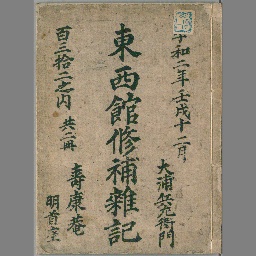 享和二年壬戌十二月
大浦兵左衛門
東西館修補雑記
百三拾二之内 共二冊
壽康菴
明首堂